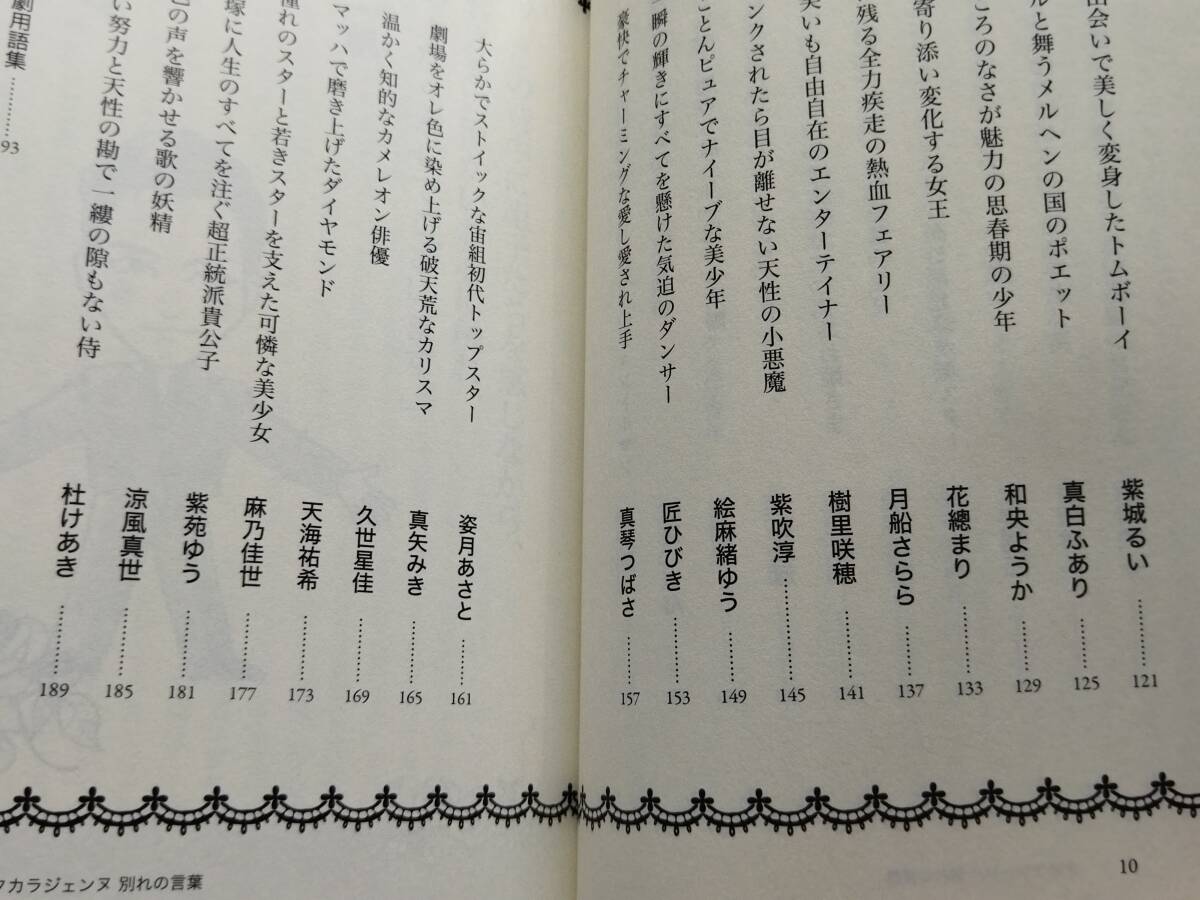 出会いで美しく変身したトムボーイ
紫城るい……………121
ルと舞うメルヘンの国のポエット
真白ふあり……………125
ころのなさが魅力の思春期の少年
和央ようか……………129
寄り添い変化する女王
花總まり……………133
残る全力疾走の熱血フェアリー
月船さらら……………137
笑いも自由自在のエンターテイナー
樹里咲穂……………141
ンクされたら目が離せない天性の小悪魔
紫吹淳……………145
ことんピュアでナイーブな美少年
絵麻緒ゆう……………149
一瞬の輝きにすべてを懸けた気迫のダンサー
匠ひびき……………153
豪快でチャーミングな愛し愛され上手
真琴つばさ……………157
10
大らかでストイックな宙組初代トップスター
姿月あさと……………161
劇場をオレ色に染め上げる破天荒なカリスマ
真矢みき……………165
温かく知的なカメレオン俳優
久世星佳……………169
マッハで磨き上げたダイヤモンド
天海祐希……………173
憧れのスターと若きスターを支えた可憐な美少女
麻乃佳世……………177
塚に人生のすべてを注ぐ超正統派貴公子
紫苑ゆう……………181
の声を響かせる歌の妖精
涼風真世……………185
い努力と天性の勘で一縷の隙もない侍
杜けあき……………189
劇用語集……………93
タカラジェンヌ 別れの言葉